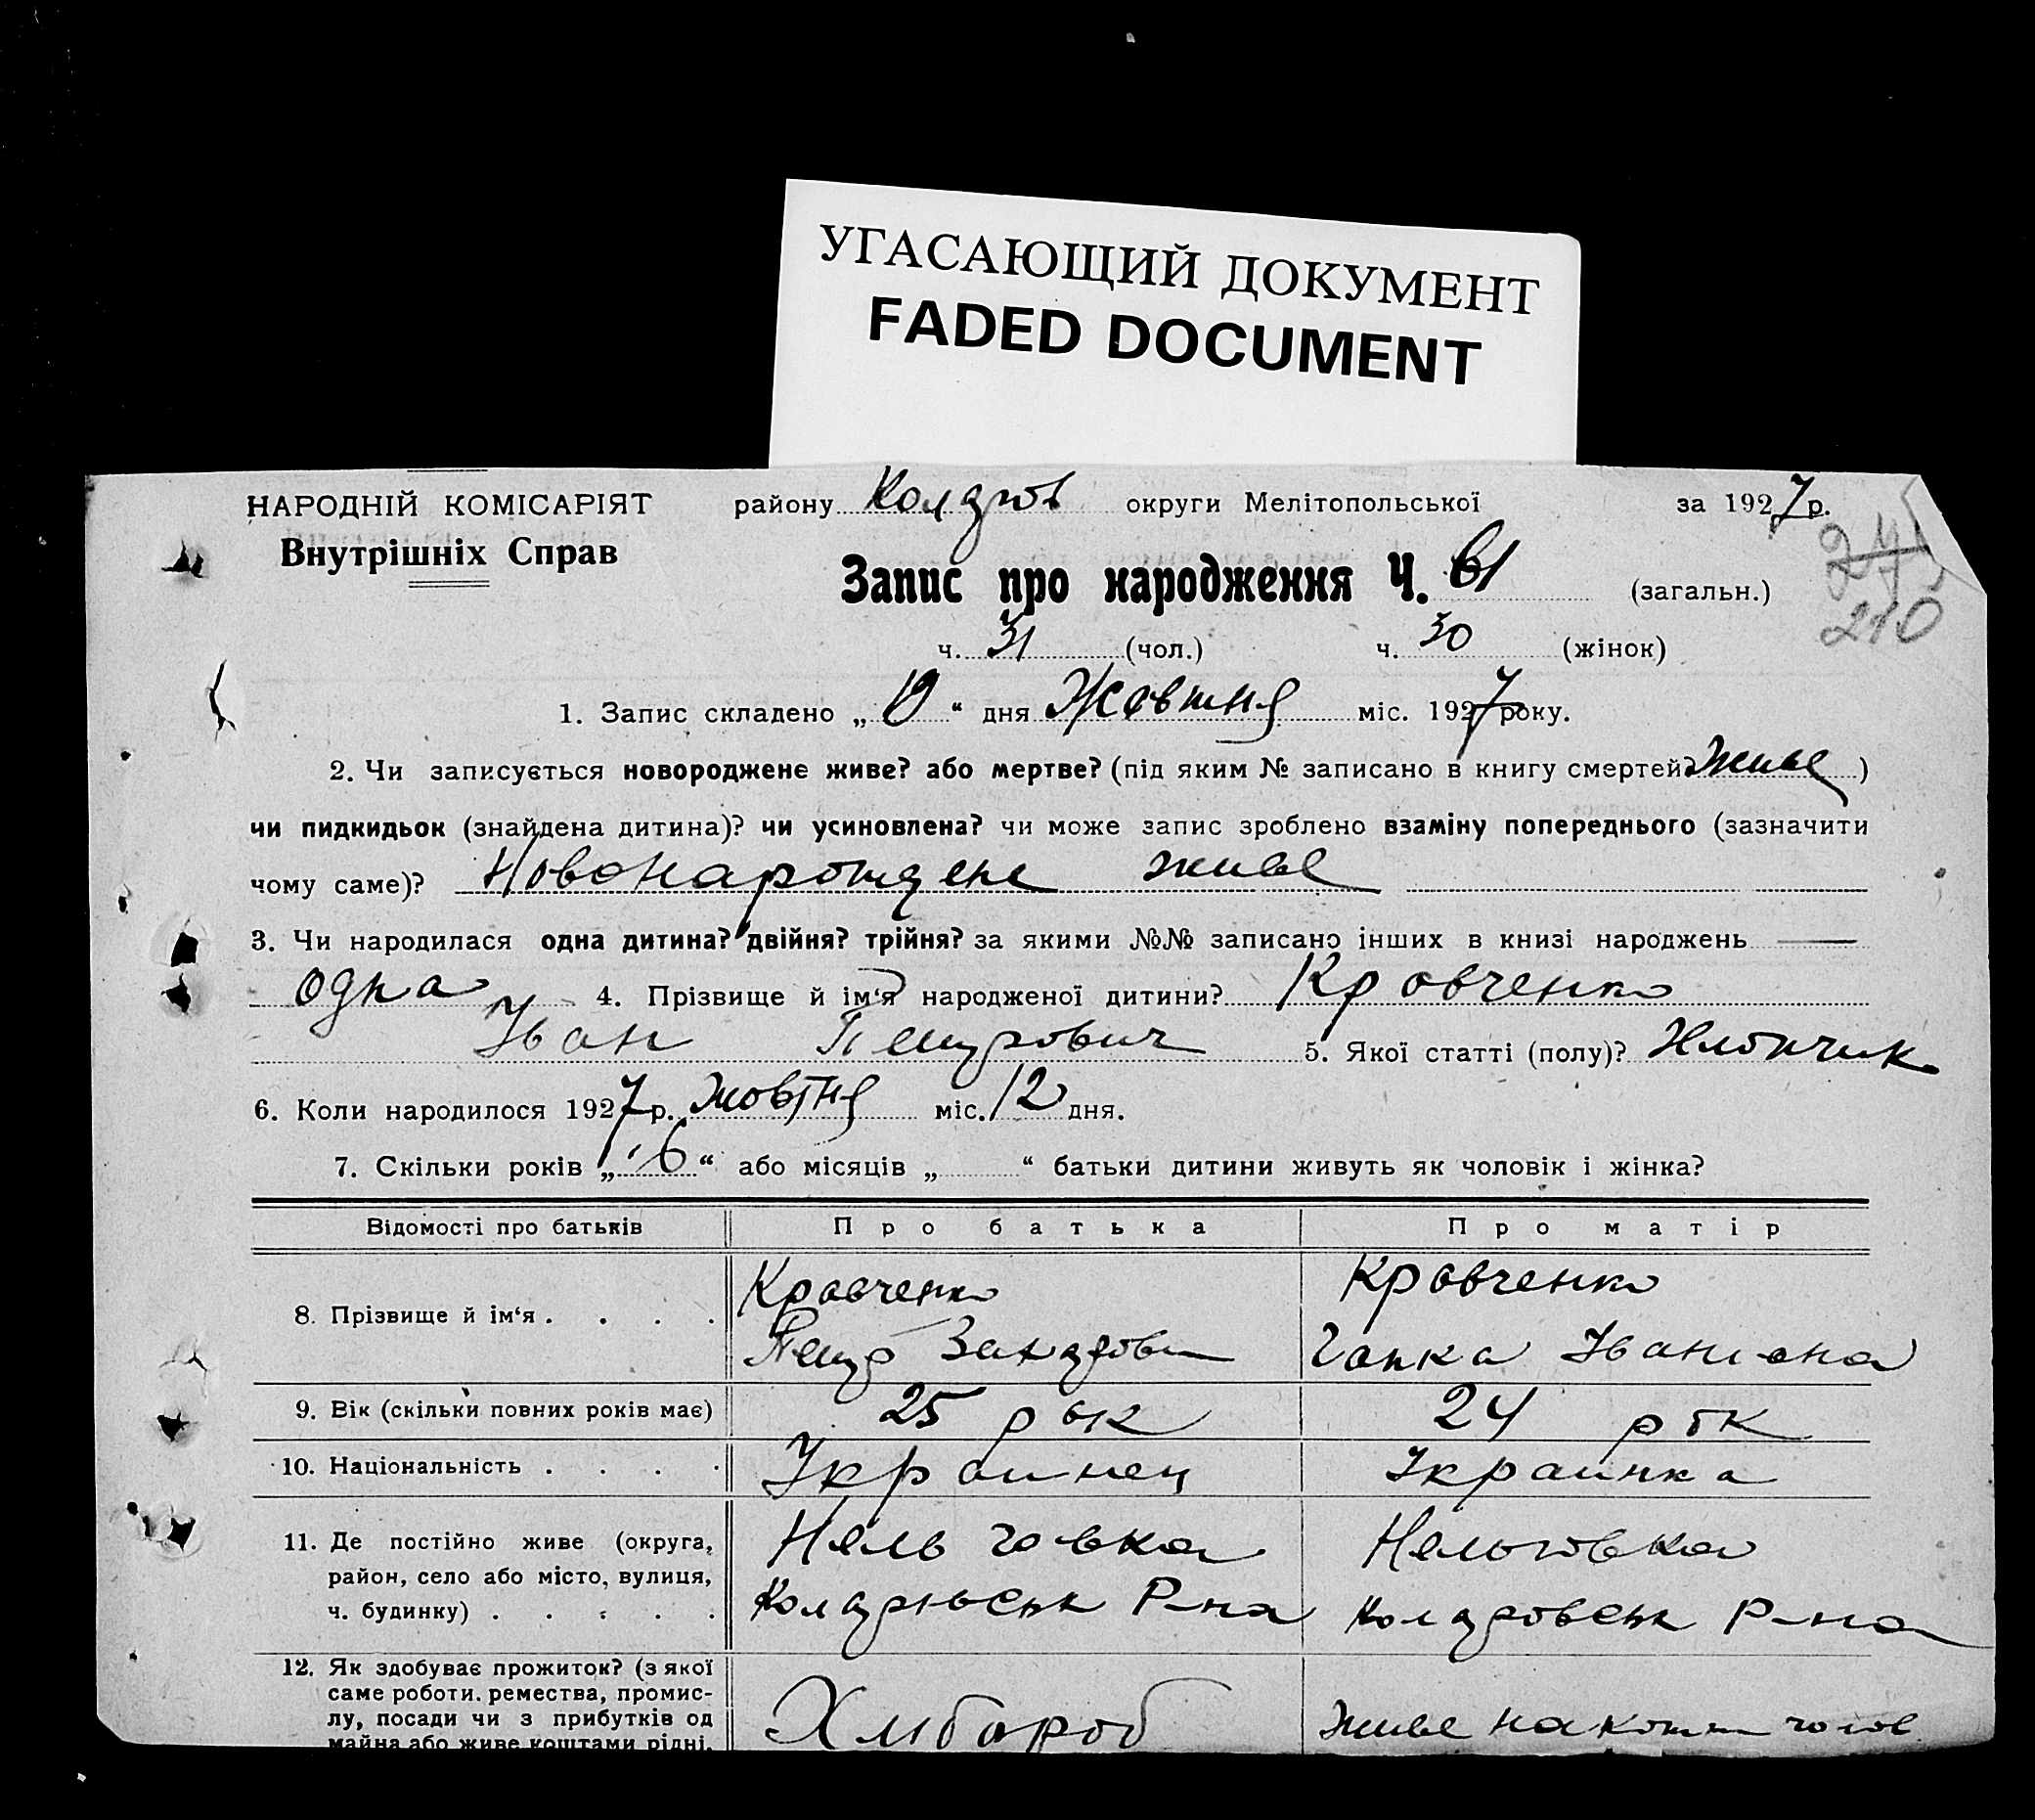 УГАСАЮЩИЙ ДОКУМЕНТ
FADED DOCUMENT
НАРОДНІЙ КОМІСАРІЯТ району округи Мелітопольської за 1927 р.
Внутрішніх Справ
Запис про народження Ч. 61 (загальн.)
210
ч. 31 (чол.) ч. 30 (жінок)
1. Запис складено „ “ дня Жовтня міс. 1927 року.
2. Чи записується новороджене живе? або мертве? (під яким № записано в книгу смертей? живе )
чи пидкидьок (знайдена дитина)? чи усиновлена? чи може запис зроблено взаміну попереднього (зазначити
чому саме)? живе
3. Чи народилася одна дитина? двійня? трійня? за якими №№ записано інших в книзі народжень —
одна 4. Прізвище й ім‘я народженої дитини? Кравченко
Іван Петрович 5. Якої статті (полу)? Хлопчик
6. Коли народилося 1927 р. жовтня міс. 12 дня.
7. Скільки років „ 6 “ або місяців „ “ батьки дитини живуть як чоловік і жінка?
Відомості про батьків Про батька Про матір
8. Прізвище й ім‘я . . . . Кравченко Кравченко
Петро Гапка Івановна
9. Вік (скільки повних років має) 25 рок 24 рок
10. Національність . . . . Украинец Украинка
11. Де постійно живе (округа,
район, село або місто, вулиця,
ч. будинку) . . . . . Р-на Р-на
12. Як здобуває прожиток? (з якої
саме роботи. ремества, промис-
лу, посади чи з прибутків од
майна або живе коштами рідні. Хлибороб живе на кошти чолов